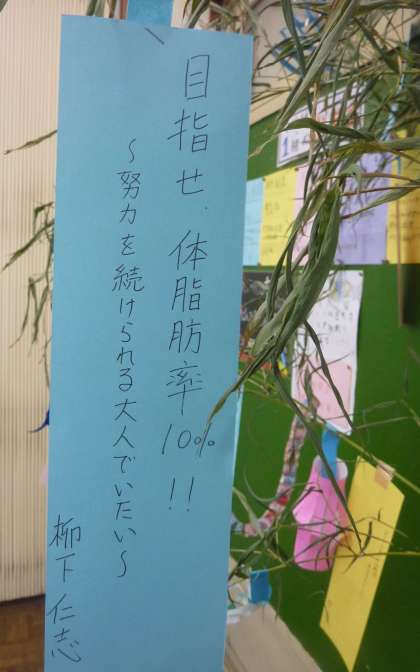 目指せ、体脂肪率10%!!
～努力を続けられる大人でいたい～
柳下 仁志